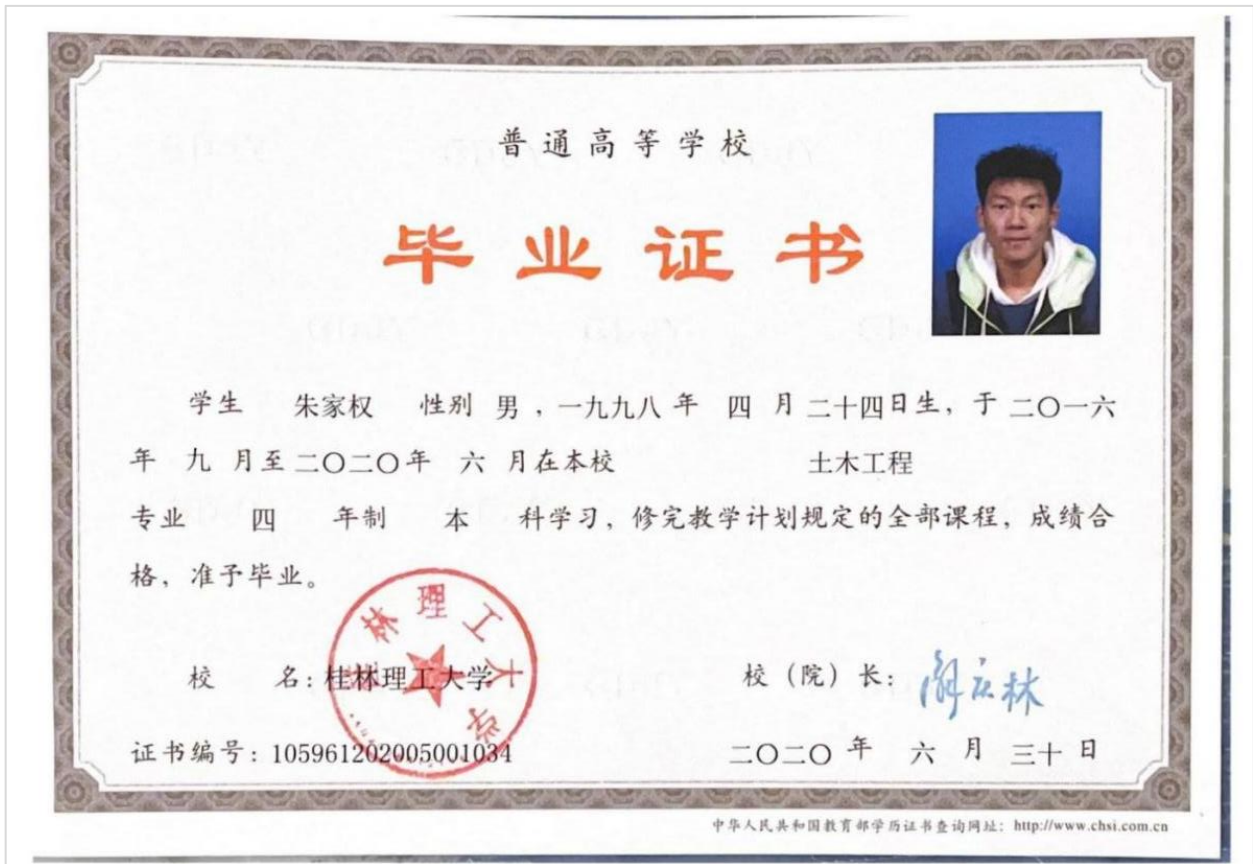 普通高等学校
毕业证书
学生 朱家权 性别 男，一九九八 年 四 月 二十四日生，于 二〇一六
年 九 月至 二〇二〇年 六 月在本校 土木工程
专业 四 年制 本 科学习，修完教学计划规定的全部课程，成绩合
格，准予毕业。
林理工大学
校 名：桂林理工大学
校（院）长：解庆林
证书编号：105961202005001034
二〇二〇 年 六 月 三十 日
中华人民共和国教育部学历证书查询网址：http://www.chsi.com.cn